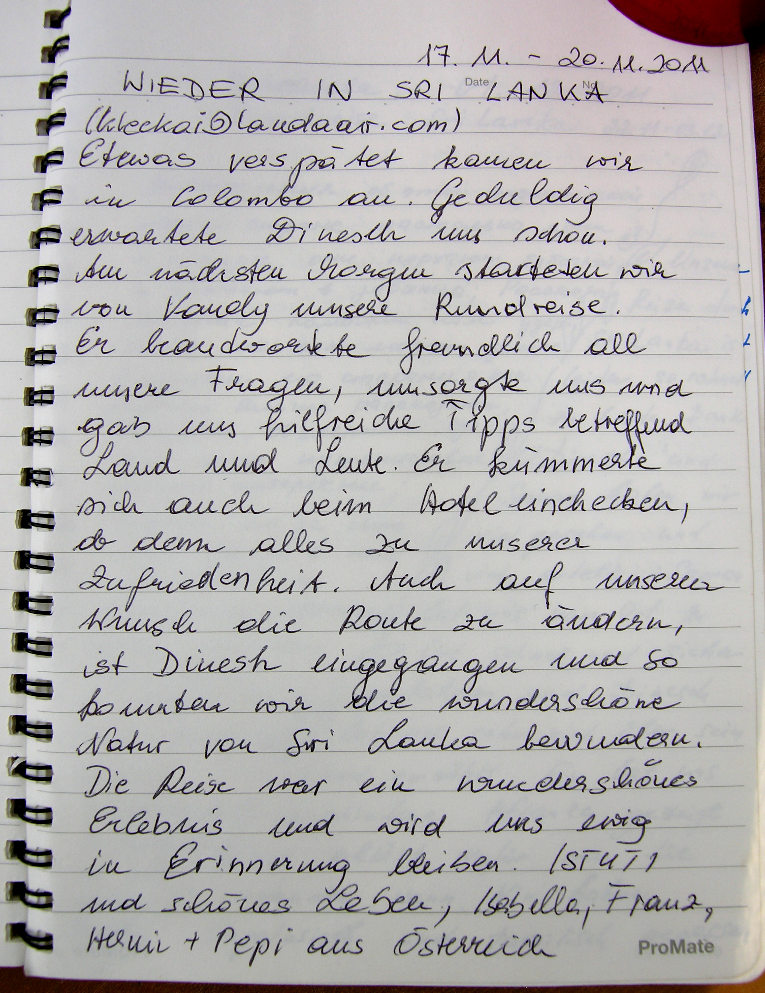 17. 11. - 20. 11. 2011
Date No
WIEDER IN SRI LANKA
(kleckai@laudaair.com)
Etwas verspätet kamen wir
in Colombo an. Geduldig
erwartete Dinesch uns schon.
Am nächsten Morgen starteten wir
von Kandy unsere Rundreise.
Er beantwortete freundlich all
unsere Fragen, umsorgte uns und
gab uns hilfreiche Tipps betreffend
Land und Leute. Er kümmerte
sich auch beim Hotel einchecken,
ob denn alles zu unserer
Zufriedenheit. Auch auf unseren
Wunsch die Route zu ändern,
ist Dinesh eingegangen und so
konnten wir die wunderschöne
Natur von Sri Lanka bewundern.
Die Reise war ein wunderschönes
Erlebnis und wird uns ewig
in Erinnerung bleiben. ISTUTI
und schönes Leben, Isabella, Franz,
Hermi + Pepi aus Österreich
ProMate